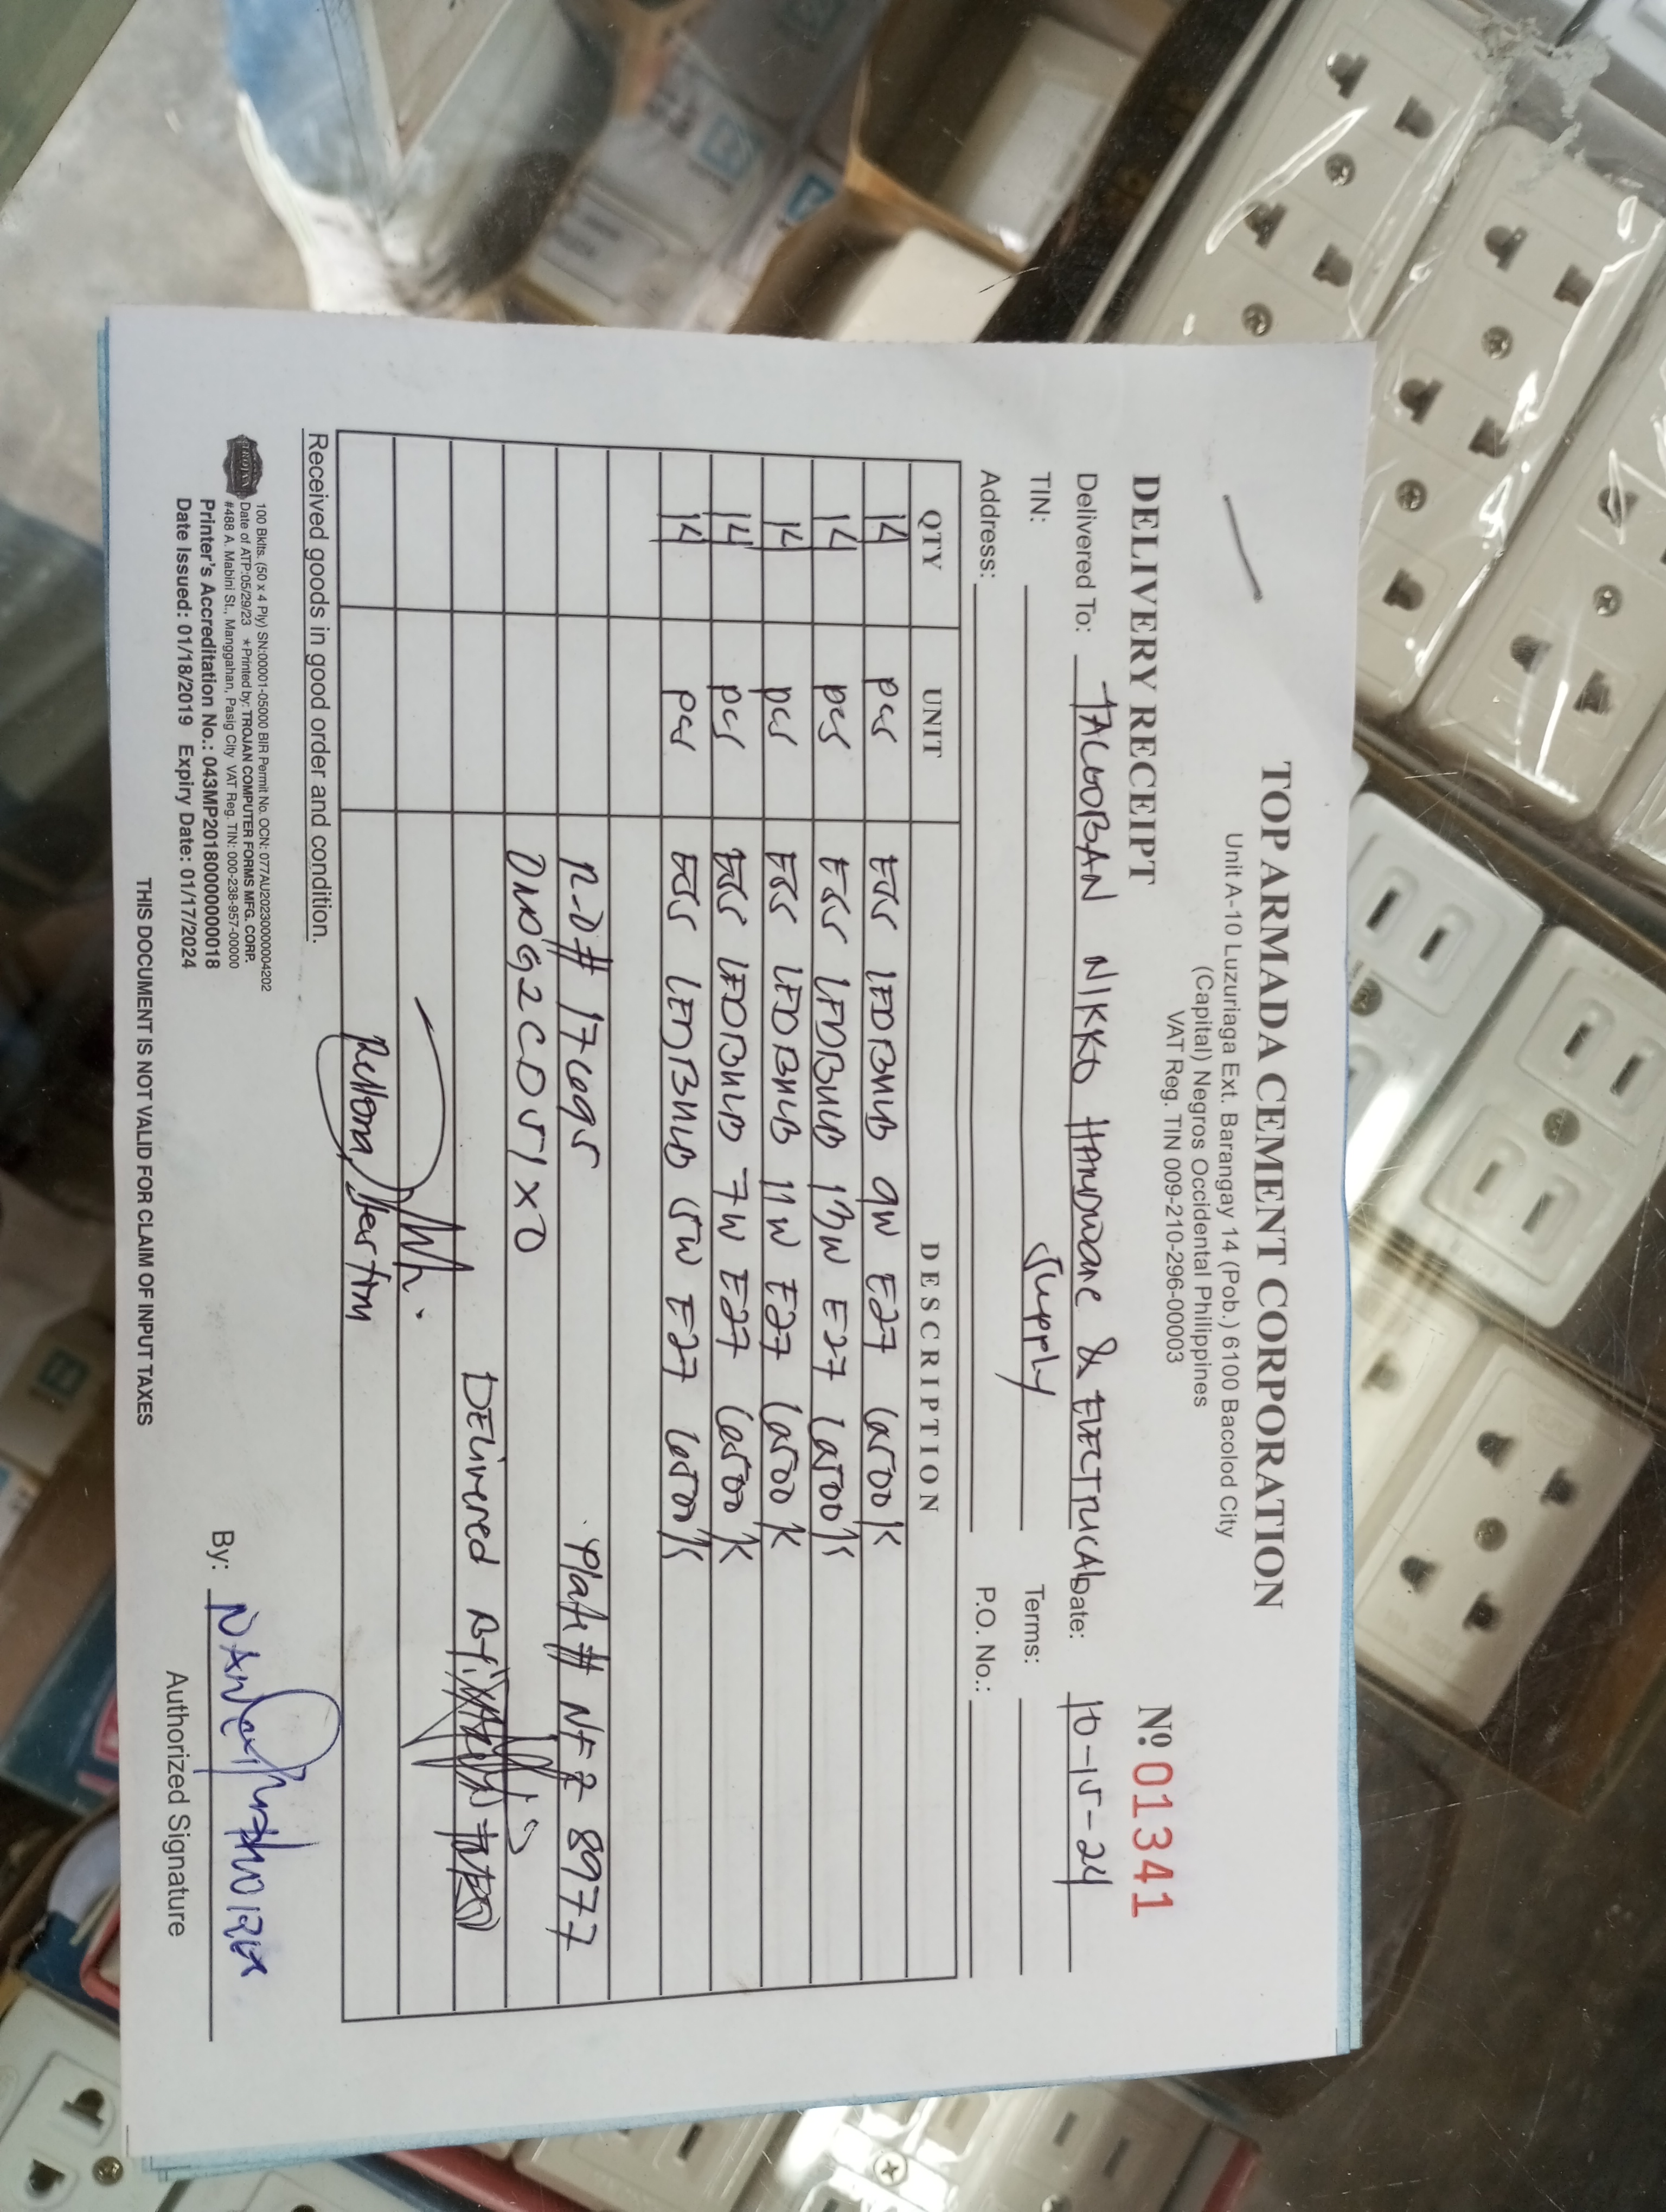 TOP ARMADA CEMENT CORPORATION
Unit A-10 Luzuriaga Ext. Barangay 14 (Pob.) 6100 Bacolod City
(Capital) Negros Occidental Philippines
VAT Reg. TIN 009-210-296-00003
DELIVERY RECEIPT Nº 01341
Delivered To: TACLOBAN NIKKO HARDWARE & ELECTRICAL Date: 10-15-24
Supply
TIN: Terms:
Address: P.O. No.:
QTY UNIT DESCRIPTION
14 pcs LEDBULB 9W E27 6500K
14 pcs LEDBULB 13W E27 6500K
14 pcs LEDBULB 11W E27 6500K
14 pcs LEDBULB 7W E27 6500K
14 pcs LEDBULB 5W E27 6500K
Plate # 8977
DELivered By:
Received goods in good order and condition.
100 Bklts. (50 x 4 Ply) SN:00001-05000 BIR Permit No. OCN: 077AU20230000004202
Date of ATP:05/29/23 *Printed by: TROJAN COMPUTER FORMS MFG. CORP.
#488 A. Mabini St., Manggahan, Pasig City VAT Reg. TIN: 000-238-957-00000
Printer's Accreditation No.: 043MP20180000000018
Date Issued: 01/18/2019 Expiry Date: 01/17/2024
TROJAN
By:
Authorized Signature
THIS DOCUMENT IS NOT VALID FOR CLAIM OF INPUT TAXES